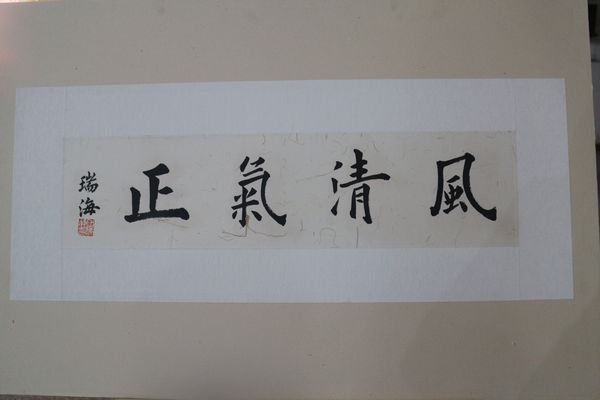 風清氣正
瑞海